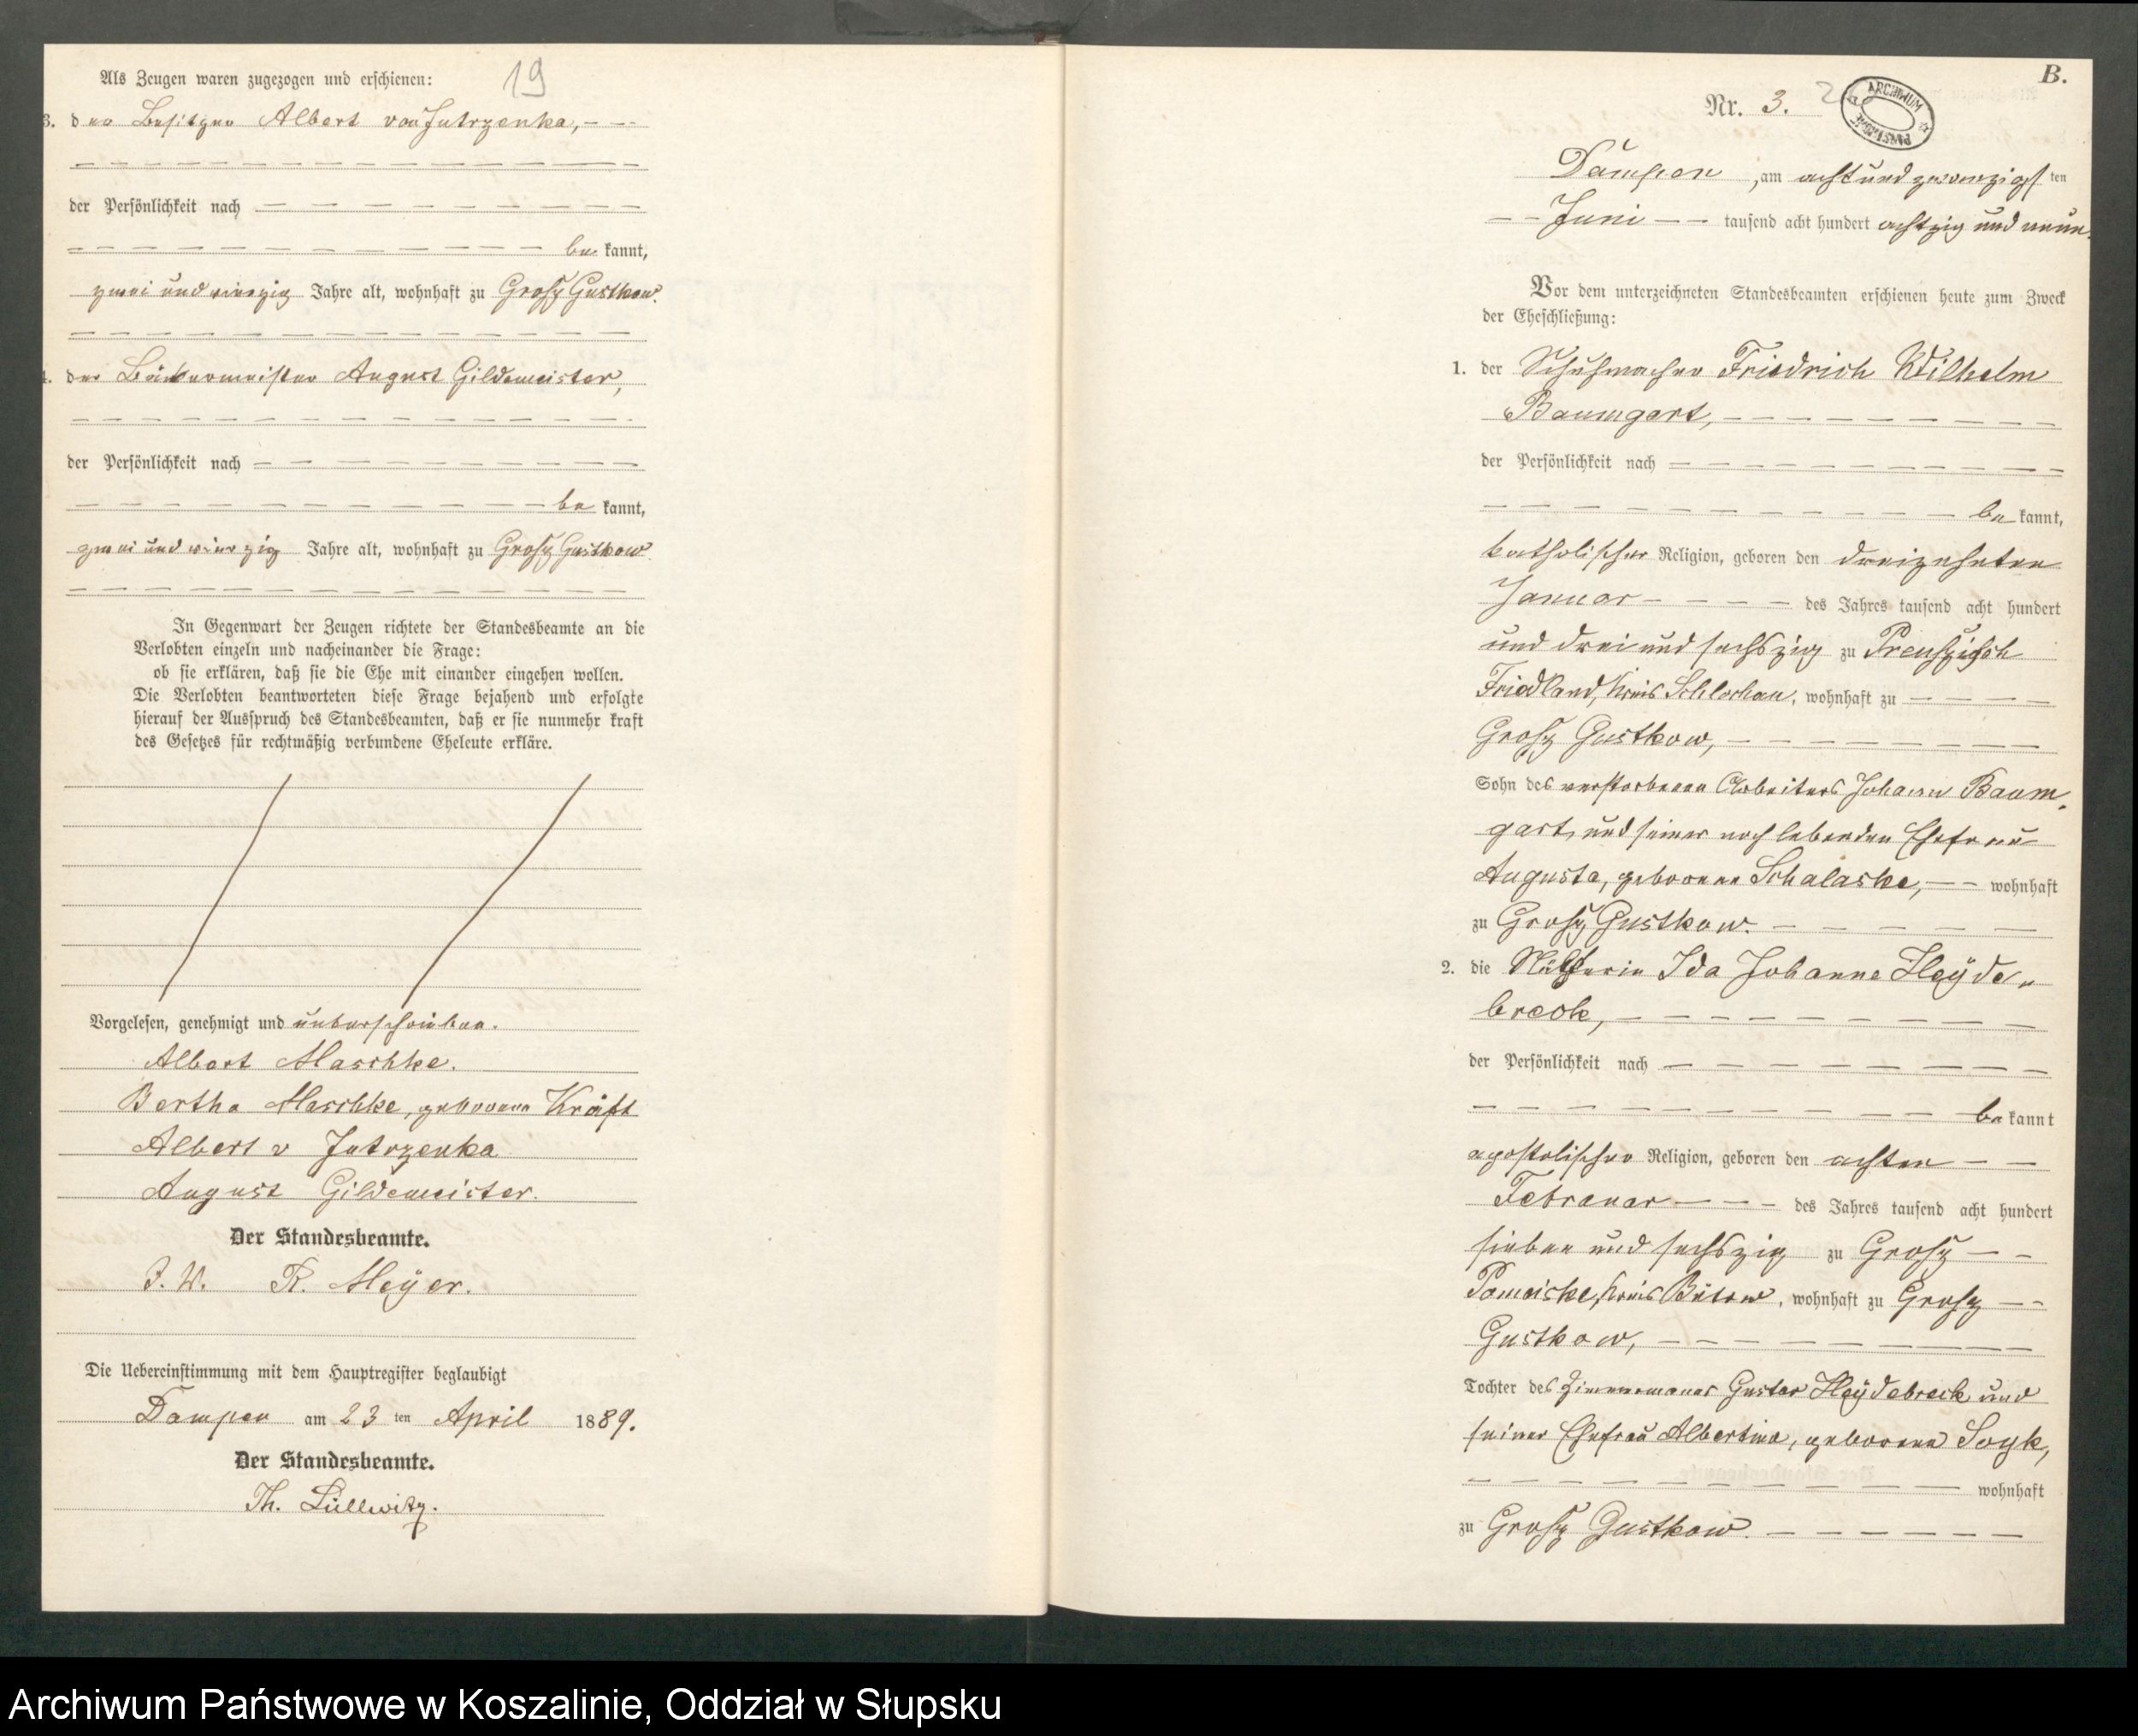 19
Als Zeugen waren zugezogen und erschienen:
3. der Besitzer Albert von Jutrzenka,
der Persönlichkeit nach
be kannt,
zwei und vierzig Jahre alt, wohnhaft zu Groß Gustkow.
4. der Bäckermeister August Gildemeister,
der Persönlichkeit nach
be kannt,
zwei und vierzig Jahre alt, wohnhaft zu Groß Gustkow
In Gegenwart der Zeugen richtete der Standesbeamte an die
Verlobten einzeln und nacheinander die Frage:
ob sie erklären, daß sie die Ehe mit einander eingehen wollen.
Die Verlobten beantworteten diese Frage bejahend und erfolgte
hierauf der Ausspruch des Standesbeamten, daß er sie nunmehr kraft
des Gesetzes für rechtmäßig verbundene Eheleute erkläre.
Vorgelesen, genehmigt und unterschrieben.
Albert Maschke.
Bertha Maschke, geborene Kräft
Albert v Jutrzenka
August Gildemeister.
Der Standesbeamte.
I. V. R. Meÿer.
Die Uebereinstimmung mit dem Hauptregister beglaubigt
Dampen am 23 ten April 1889.
Der Standesbeamte.
Th. Lüllwitz.
B.
Nr. 3.
ARCHIWUM PAŃSTWOWE
Dampen, am acht und zwanzigsten
Juni tausend acht hundert achtzig und neun.
Vor dem unterzeichneten Standesbeamten erschienen heute zum Zweck
der Eheschließung:
1. der Schuhmacher Friedrich Wilhelm
Baumgart,
der Persönlichkeit nach
be kannt,
katholischer Religion, geboren den dreizehnten
Januar des Jahres tausend acht hundert
und drei und sechszig zu Preußisch
Friedland, Kreis Schlochau, wohnhaft zu
Groß Gustkow,
Sohn des verstorbenen Arbeiters Johann Baum-
gart, und seiner noch lebenden Ehefrau
Auguste, geborene Schalaske, wohnhaft
zu Groß Gustkow.
2. die Näherin Ida Johanne Heÿde-
breck,
der Persönlichkeit nach
be kannt
apostolischer Religion, geboren den achten
Februar des Jahres tausend acht hundert
sieben und sechszig zu Groß
Pomeiske, Kreis Bütow, wohnhaft zu Groß
Gustkow,
Tochter des Zimmermanns Gustav Heÿdebreck und
seiner Ehefrau Albertine, geborene Soyk,
wohnhaft
zu Groß Gustkow.
Archiwum Państwowe w Koszalinie, Oddział w Słupsku